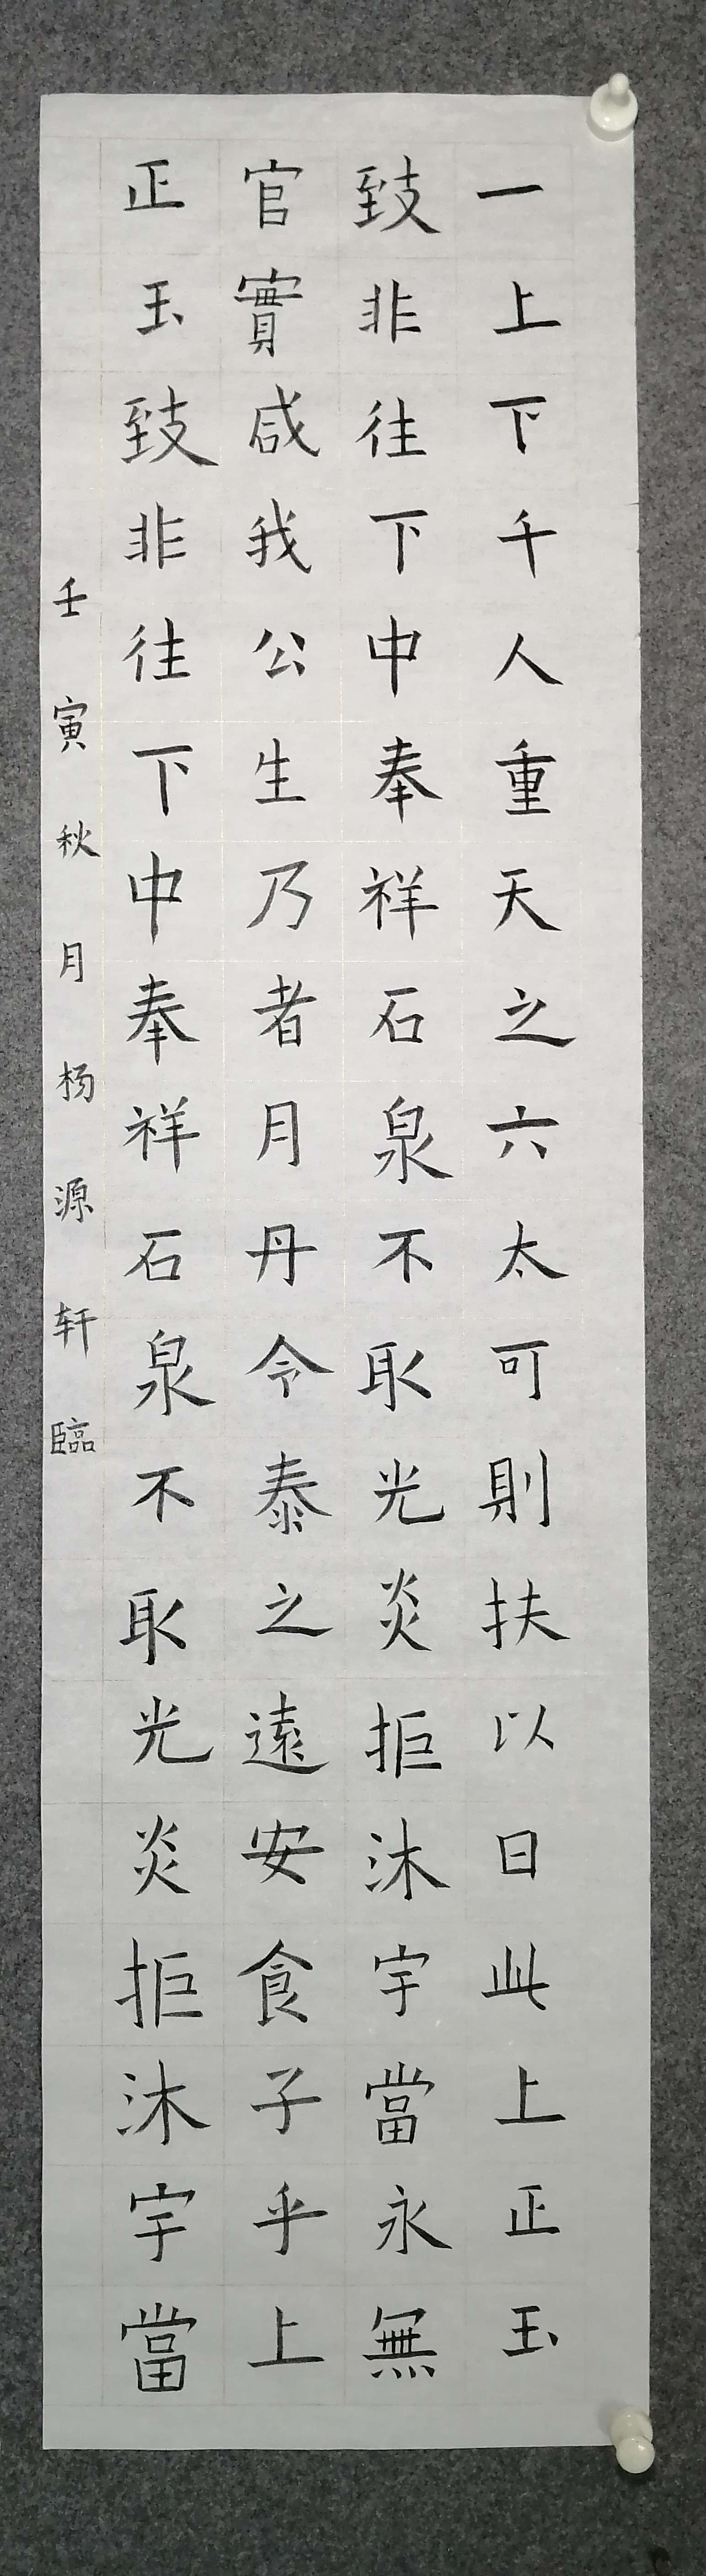 一上下千人重天之六太可則扶以日此上正玉
致非往下中奉祥石泉不取光炎拒沐宇當永無
官實咸我公生乃者月丹令泰之遠安食子乎上
正玉致非往下中奉祥石泉不取光炎拒沐宇當
壬寅秋月杨源轩臨